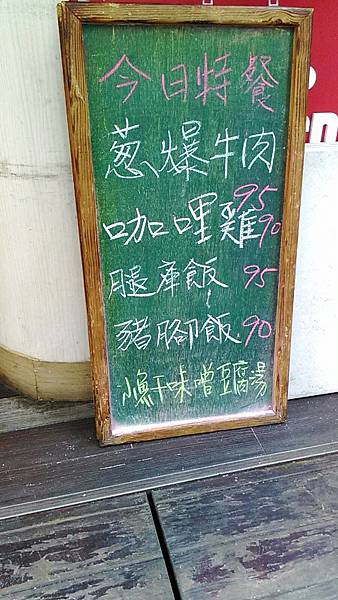 今日特餐
葱爆牛肉
95
咖哩雞90
腿庫飯 95
豬腳飯90
小魚干味噌豆腐湯
en